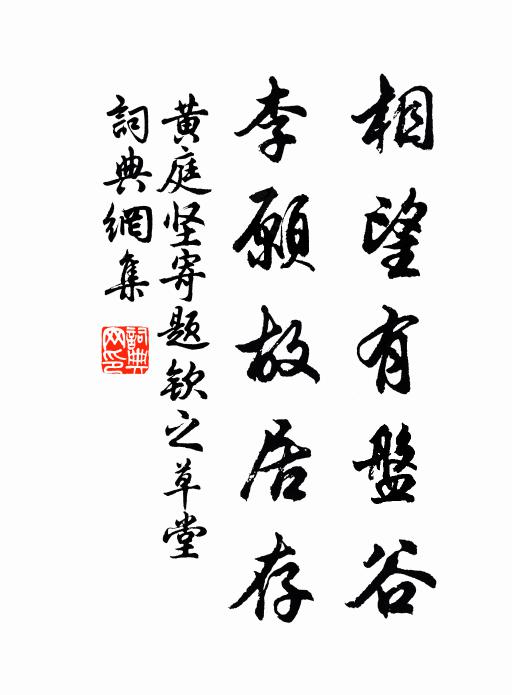 相望有盤谷
李願故居存
黄庭坚寄题欽之草堂
詞典網集
詞典網印